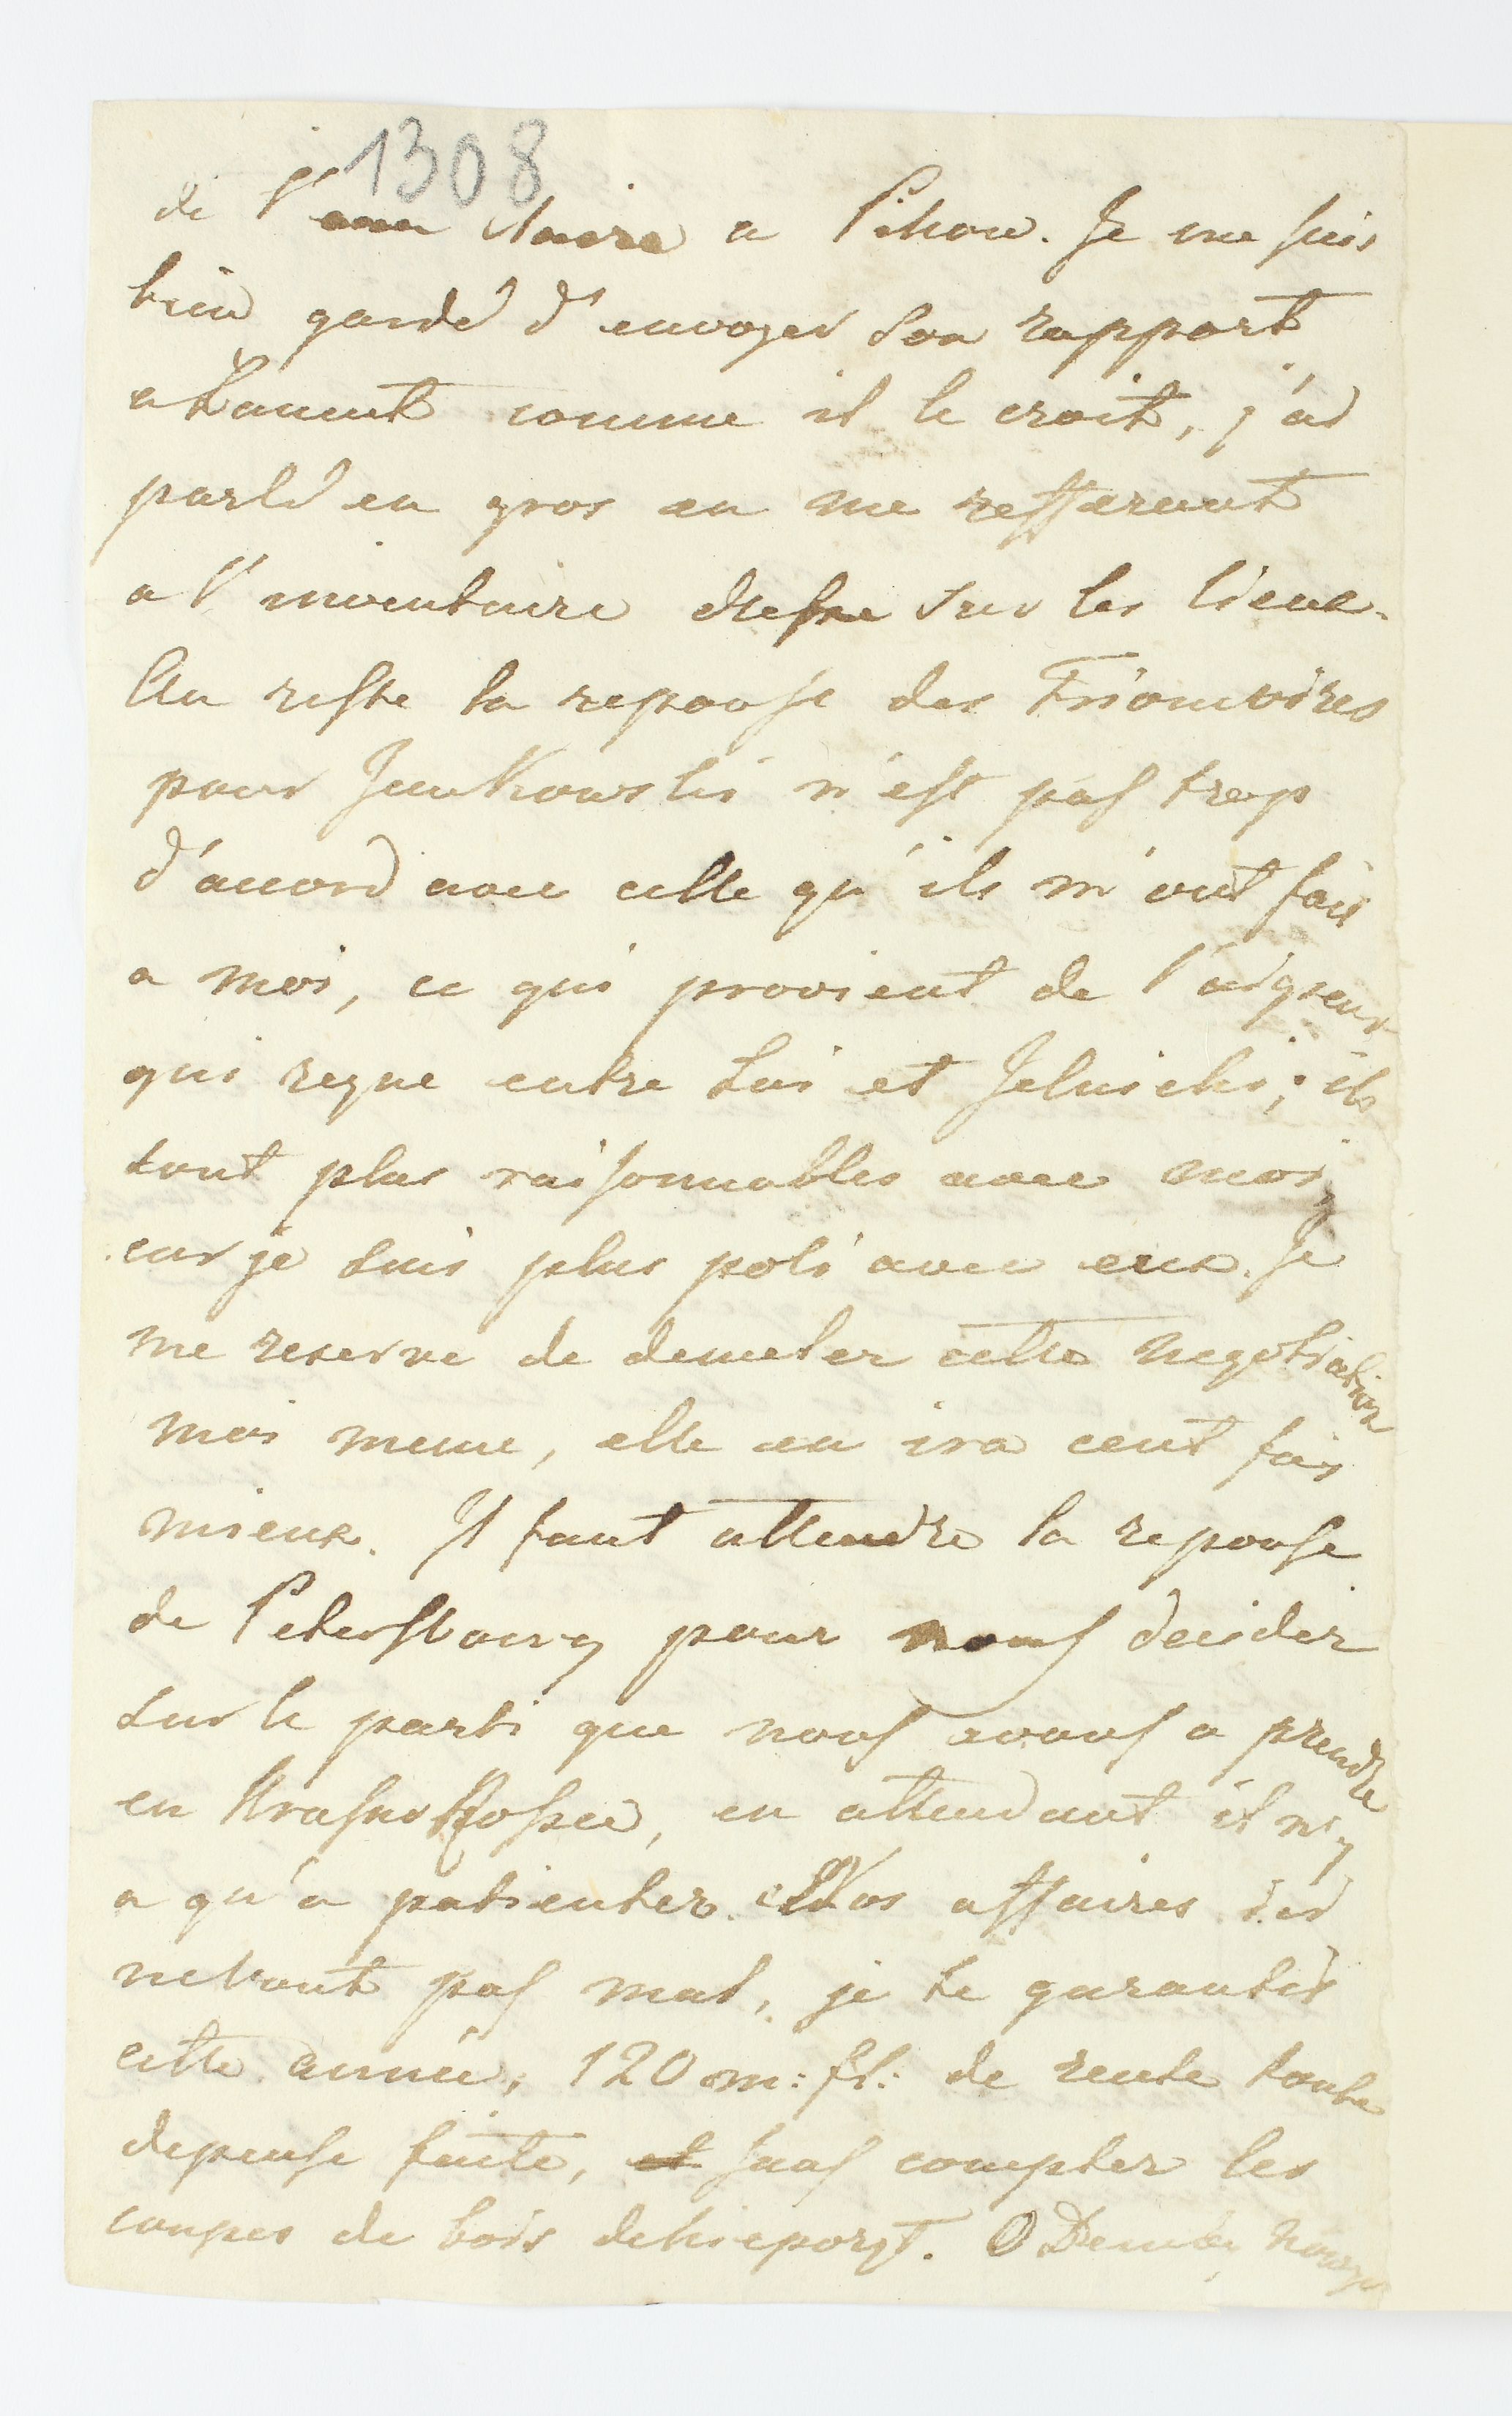 1308
de l' a Pikow. Je me suis
bien gardé d'envoyer son rapport
a Lancut comme il le croit, j'ai
parlé en gros en me refferant
a l'inventaire sur les lieux.
Au reste la reponse des Triomvires
pour Junkowski n'est pas trop
d'accord avec celle qu'ils m'ont fait
a moi, ce qui provient de l'aigreur
qui regne entre lui et Jelnicki; ils
sont plus raisonnables avec moi,
car je suis plus poli avec eux. Je
me reserve de demeler cette negotiation
moi meme, elle en ira cent fois
mieux. Il faut attendre la reponse
de Petersbourg pour nous decider
sur le parti que nous avons a prendre
en attendant il n'y
a qu'a patienter. Nos affaires ici
ne vont pas mal, je te garantis
cette année, 120 m: fl: de rente toute
depense faite, sans compter les
coupes de bois . O Demby